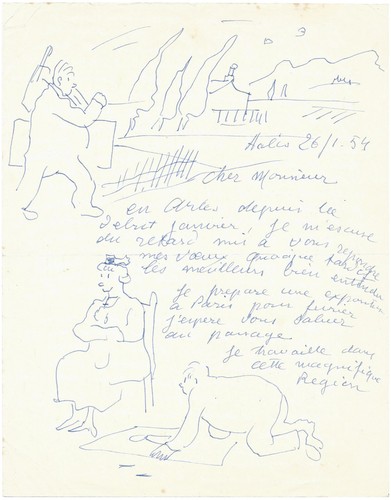 26/1-54
Cher Monsieur
en Arles depuis le
debut janvier. Je m'excuse
du retard mis à vous
mes vœux quoique
les meilleurs bien entendu
Je prepare une exposition
à Paris pour fevrier
j'espere vous saluer
au passage
Je travaille dans
cette magnifique
Region